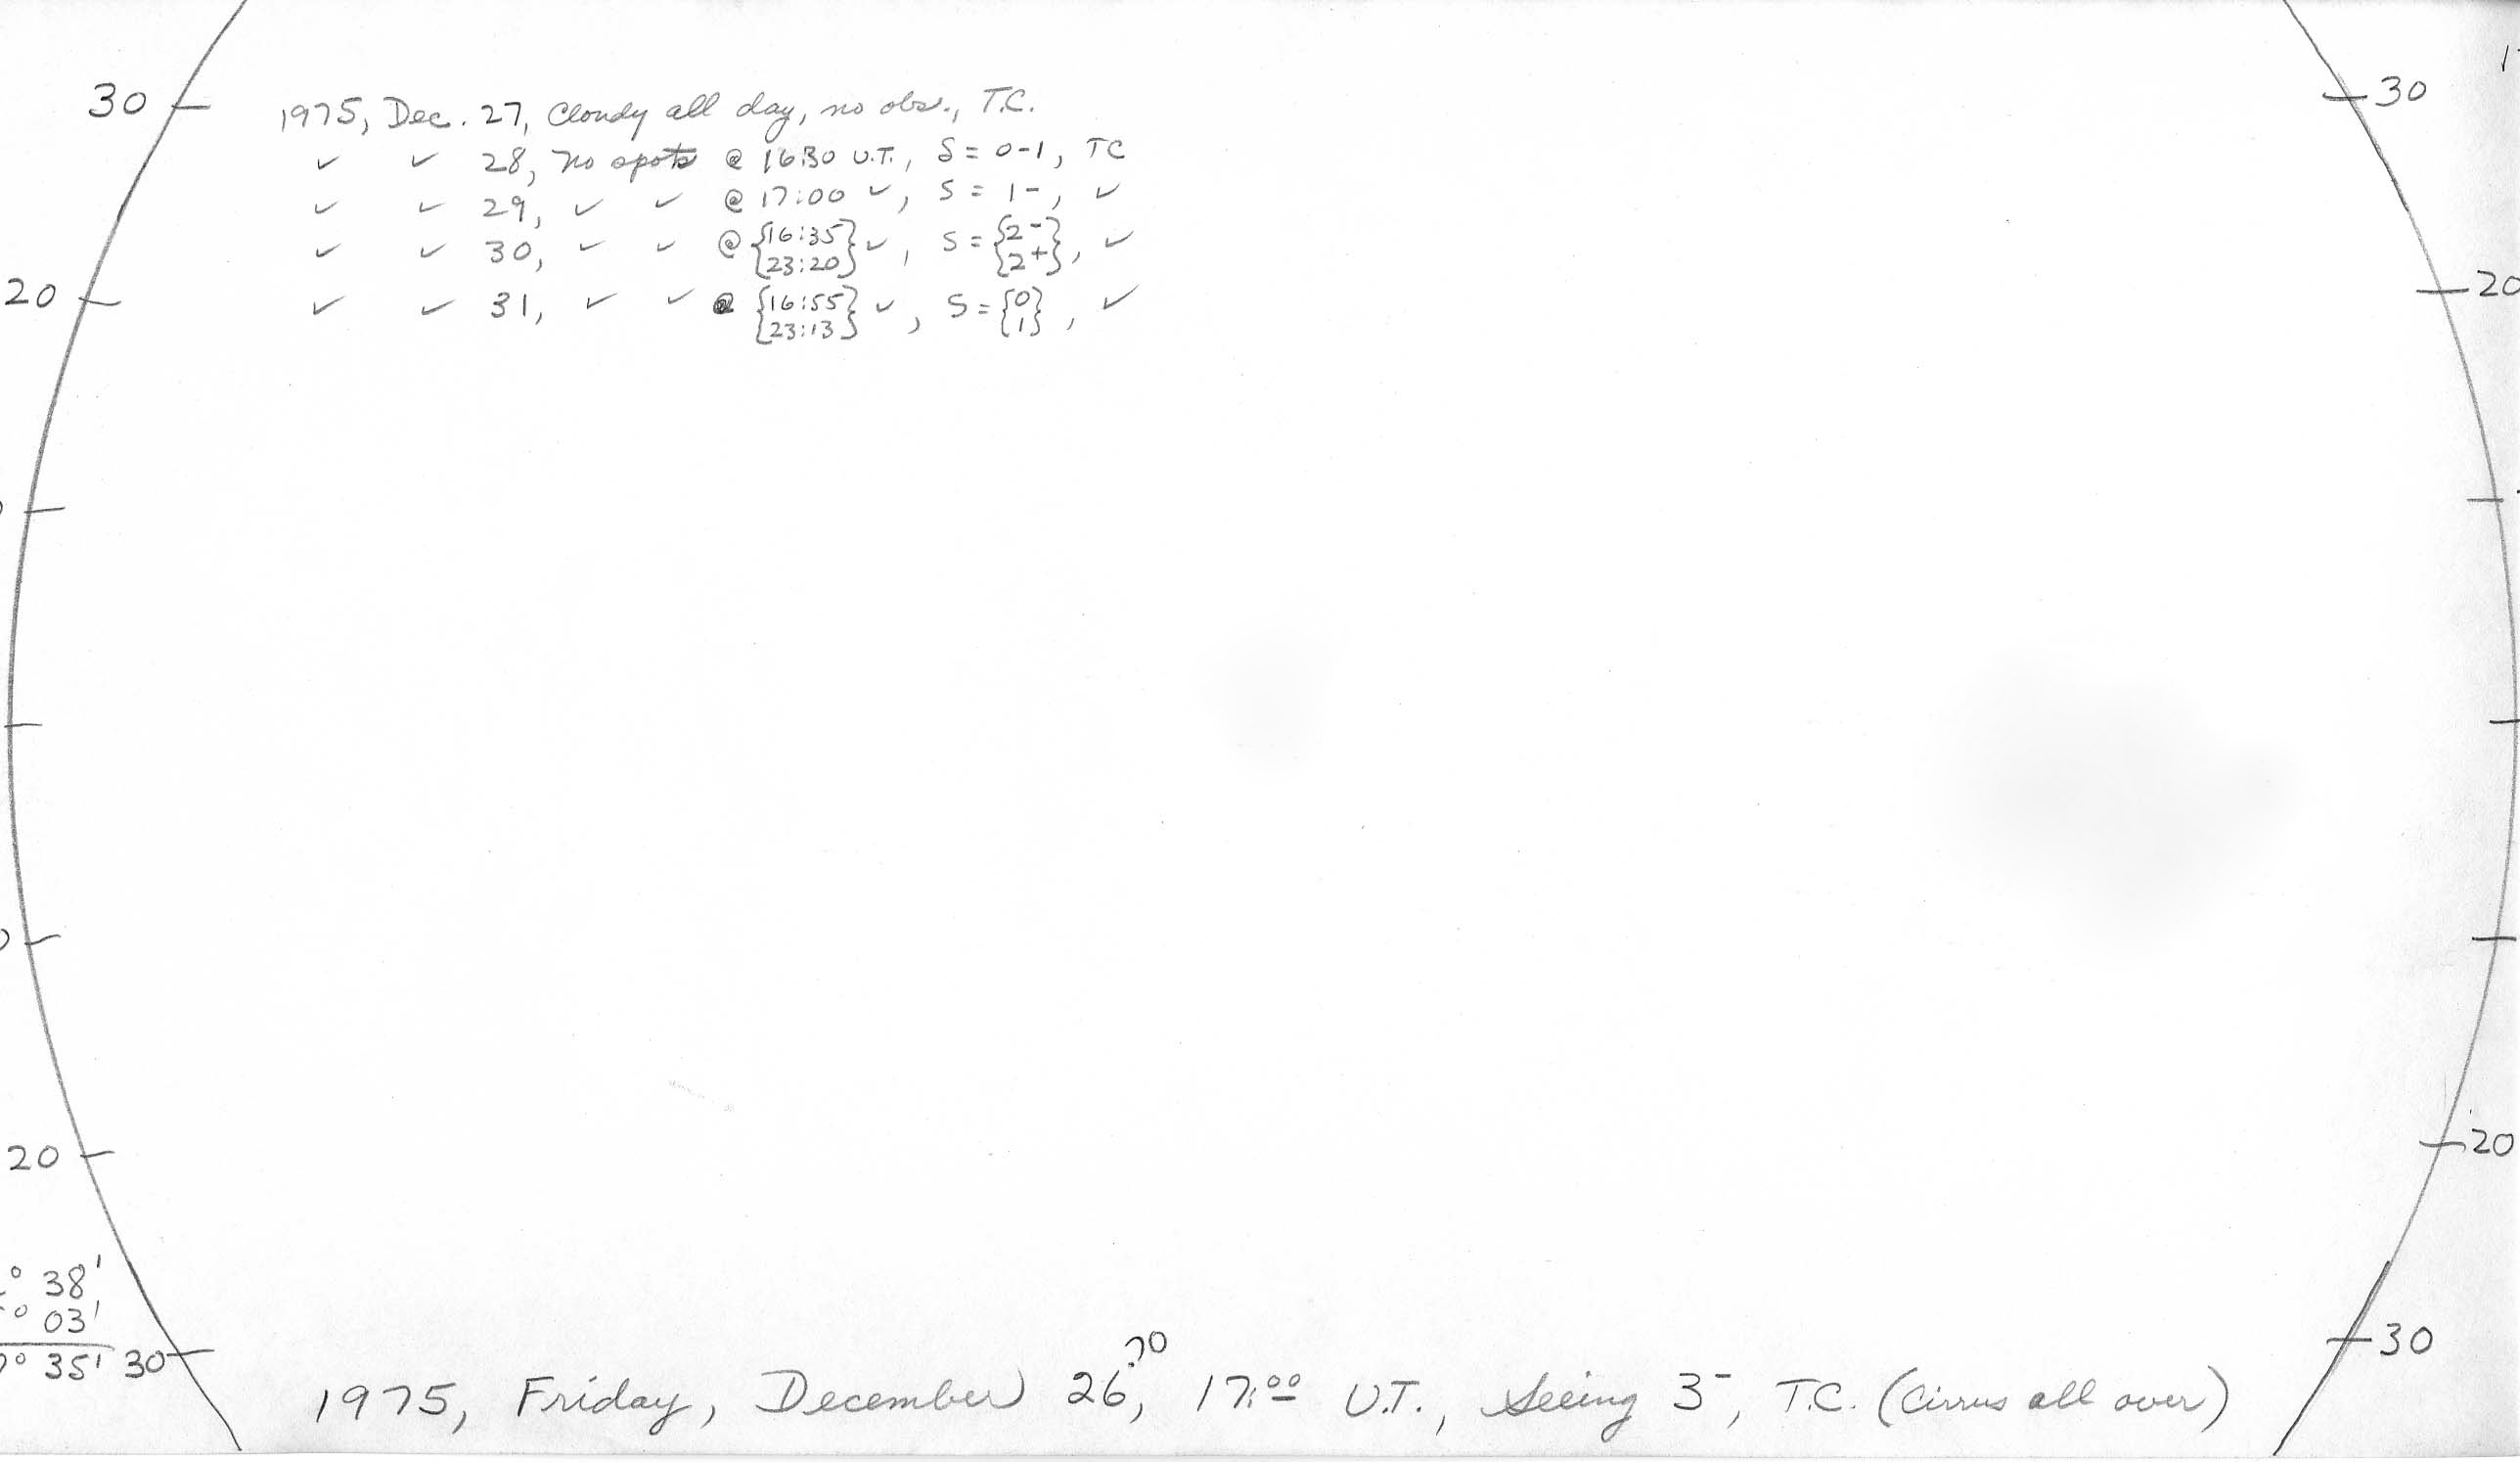 30 30
1975, Dec. 27, Cloudy all day, no obs., T.C.
✓ ✓ 28, No spots @ 16:30 U.T., S = 0-1, TC
✓ ✓ 29, ✓ ✓ @ 17:00 ✓, S = 1-, ✓
✓ ✓ 30, ✓ ✓ @ {16:35} ✓, S = {2-}, ✓
{23:20} {2+}
20 20
✓ ✓ 31, ✓ ✓ @ {16:55} ✓, S = {0}, ✓
{23:13} {1}
20 20
° 38'
° 03'
° 35' 30 30
.70
1975, Friday, December 26, 17:00 U.T., Seeing 3-, T.C. (Cirrus all over)